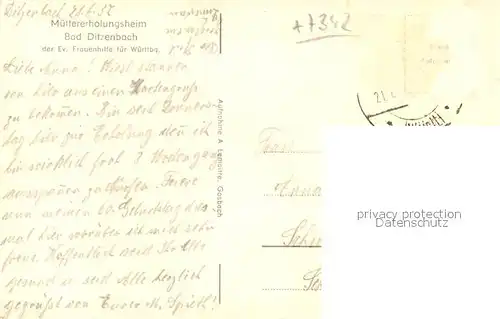 Ditzenbach 21.6.52
Müttererholungsheim
Bad Ditzenbach
der Ev. Frauenhilfe für Württbg.
Liebe Anna! Wirst staunen
von hier aus einen Kartengruß
zu bekommen. Bin seit Donners-
tag hier zur Erholung den ich
bin wirklich froh 3 Wochen ganz
ausspannen zu dürfen. Feiere
nun meinen 60. Geburtstag das
mal hier worüber ich mich sehr
freue. Hoffentlich seid Ihr alle
gesund u. seid Alle herzlich
gegrüßt von Eurer M. Spieth!
Aufnahme A. Lemaitre, Gosbach
+7342
21.6
Frau
Anna
privacy protection
Datenschutz